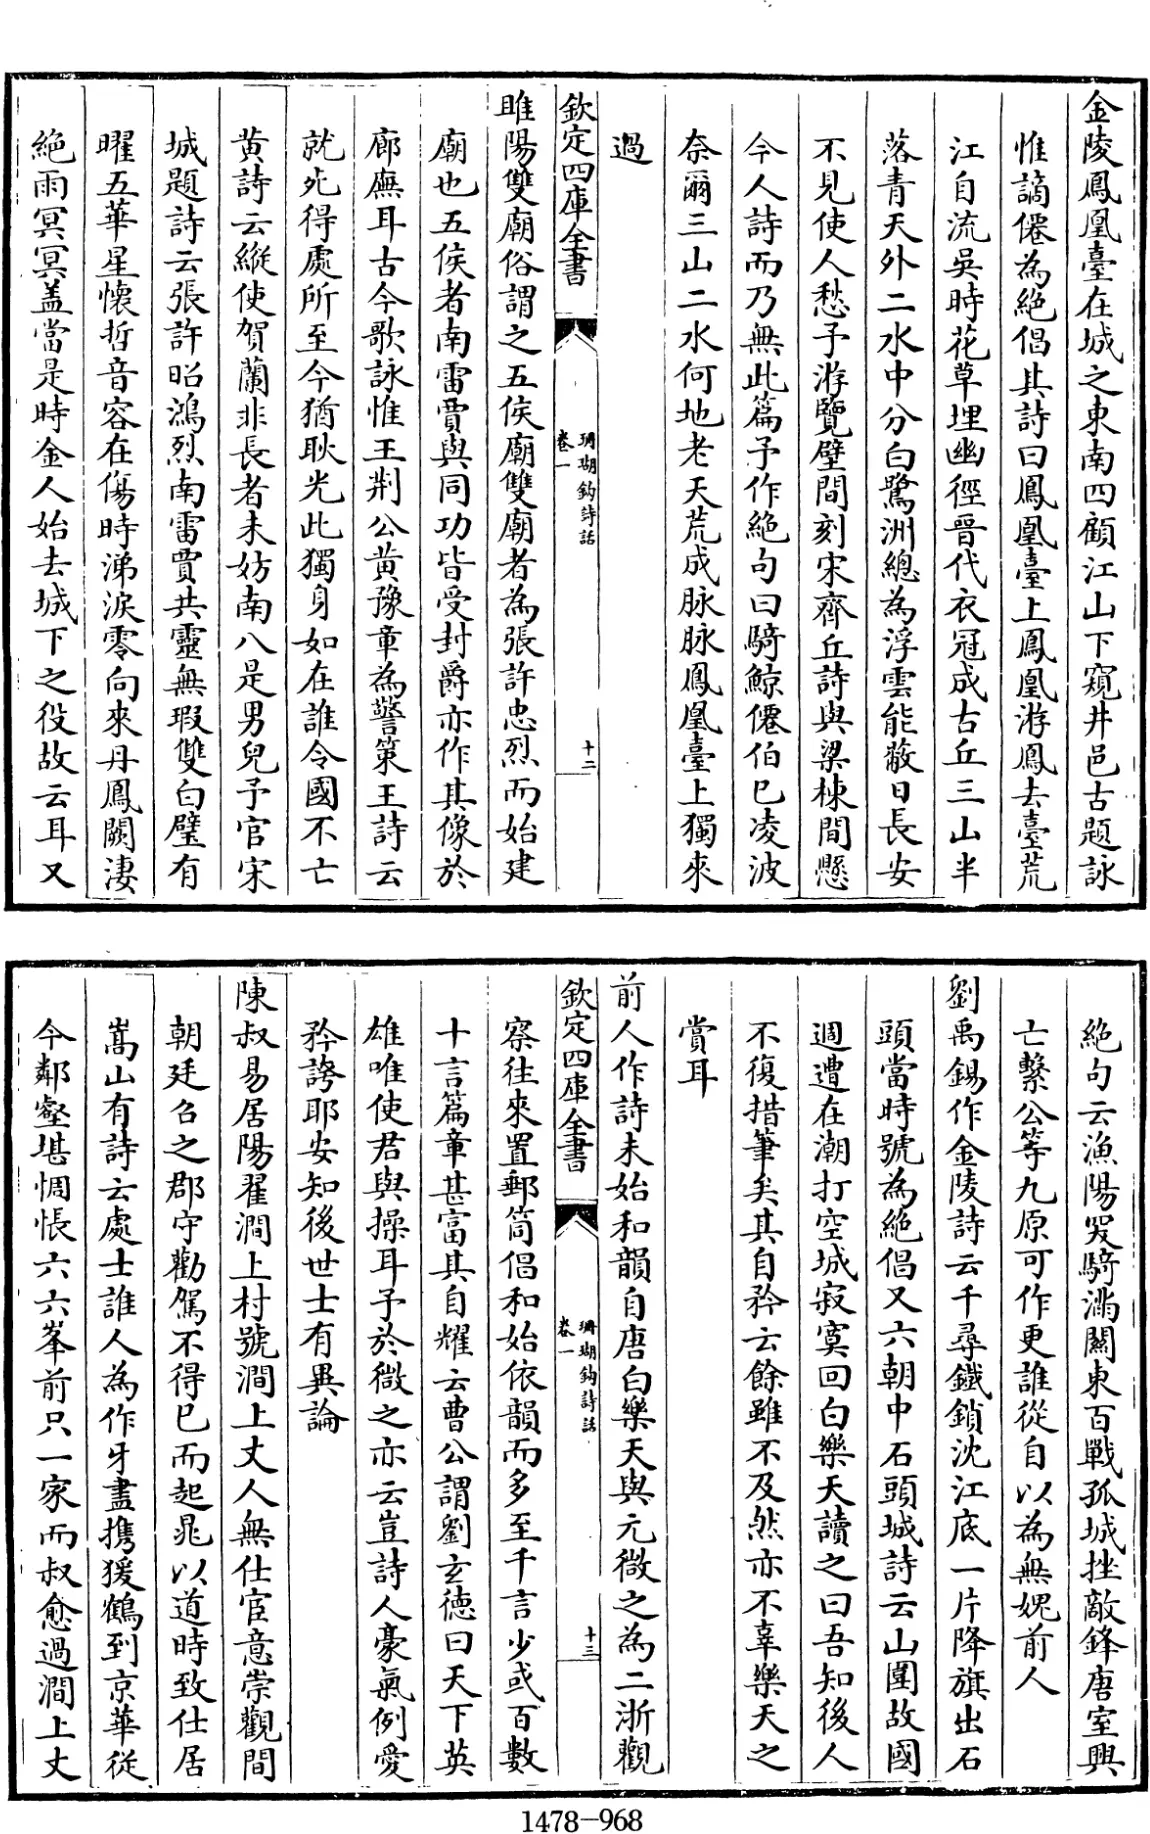 金陵鳳凰臺在城之東南四顧江山下窺井邑古題詠
惟謫僊為絶倡其詩曰鳳凰臺上鳳凰游鳳去臺荒
江自流吳時花草埋幽徑晉代衣冠成古丘三山半
落青天外二水中分白鷺洲總為浮雲能蔽日長安
不見使人愁予游覽壁間刻宋齊丘詩與梁棟間懸
今人詩而乃無此篇予作絶句曰騎鯨僊伯已凌波
奈爾三山二水何地老天荒成脉脉鳳凰臺上獨來
過
欽定四庫全書
珊瑚鈎詩話
卷一
十二
睢陽雙廟俗謂之五侯廟雙廟者為張許忠烈而始建
廟也五侯者南雷賈與同功皆受封爵亦作其像於
廊廡耳古今歌詠惟王荆公黄豫章為警策王詩云
就死得處所至今猶耿光此獨身如在誰令國不亡
黄詩云縱使賀蘭非長者未妨南八是男兒予官宋
城題詩云張許昭鴻烈南雷賈共靈無瑕雙白璧有
曜五華星懷哲音容在傷時涕淚零向來丹鳳闕淒
絶雨冥冥盖當是時金人始去城下之役故云耳又
絶句云漁陽突騎滿關東百戰孤城挫敵鋒唐室興
亡繫公等九原可作更誰從自以為無媿前人
劉禹錫作金陵詩云千尋鐵鎖沈江底一片降旗出石
頭當時號為絶倡又六朝中石頭城詩云山圍故國
週遭在潮打空城寂寞回白樂天讀之曰吾知後人
不復措筆矣其自矜云餘雖不及然亦不辜樂天之
賞耳
前人作詩未始和韻自唐白樂天與元微之為二浙觀
欽定四庫全書
珊瑚鈎詩話
卷一
十三
察往來置郵筒倡和始依韻而多至千言少或百數
十言篇章甚富其自耀云曹公謂劉玄德曰天下英
雄唯使君與操耳予於微之亦云豈詩人豪氣例愛
矜誇耶安知後世士有異論
陳叔易居陽翟澗上村號澗上丈人無仕宦意崇觀間
朝廷召之郡守勸駕不得已而起晁以道時致仕居
嵩山有詩云處士誰人為作牙盡攜猨鶴到京華從
今鄰壑堪惆悵六六峯前只一家而叔愈過澗上丈
1478-968